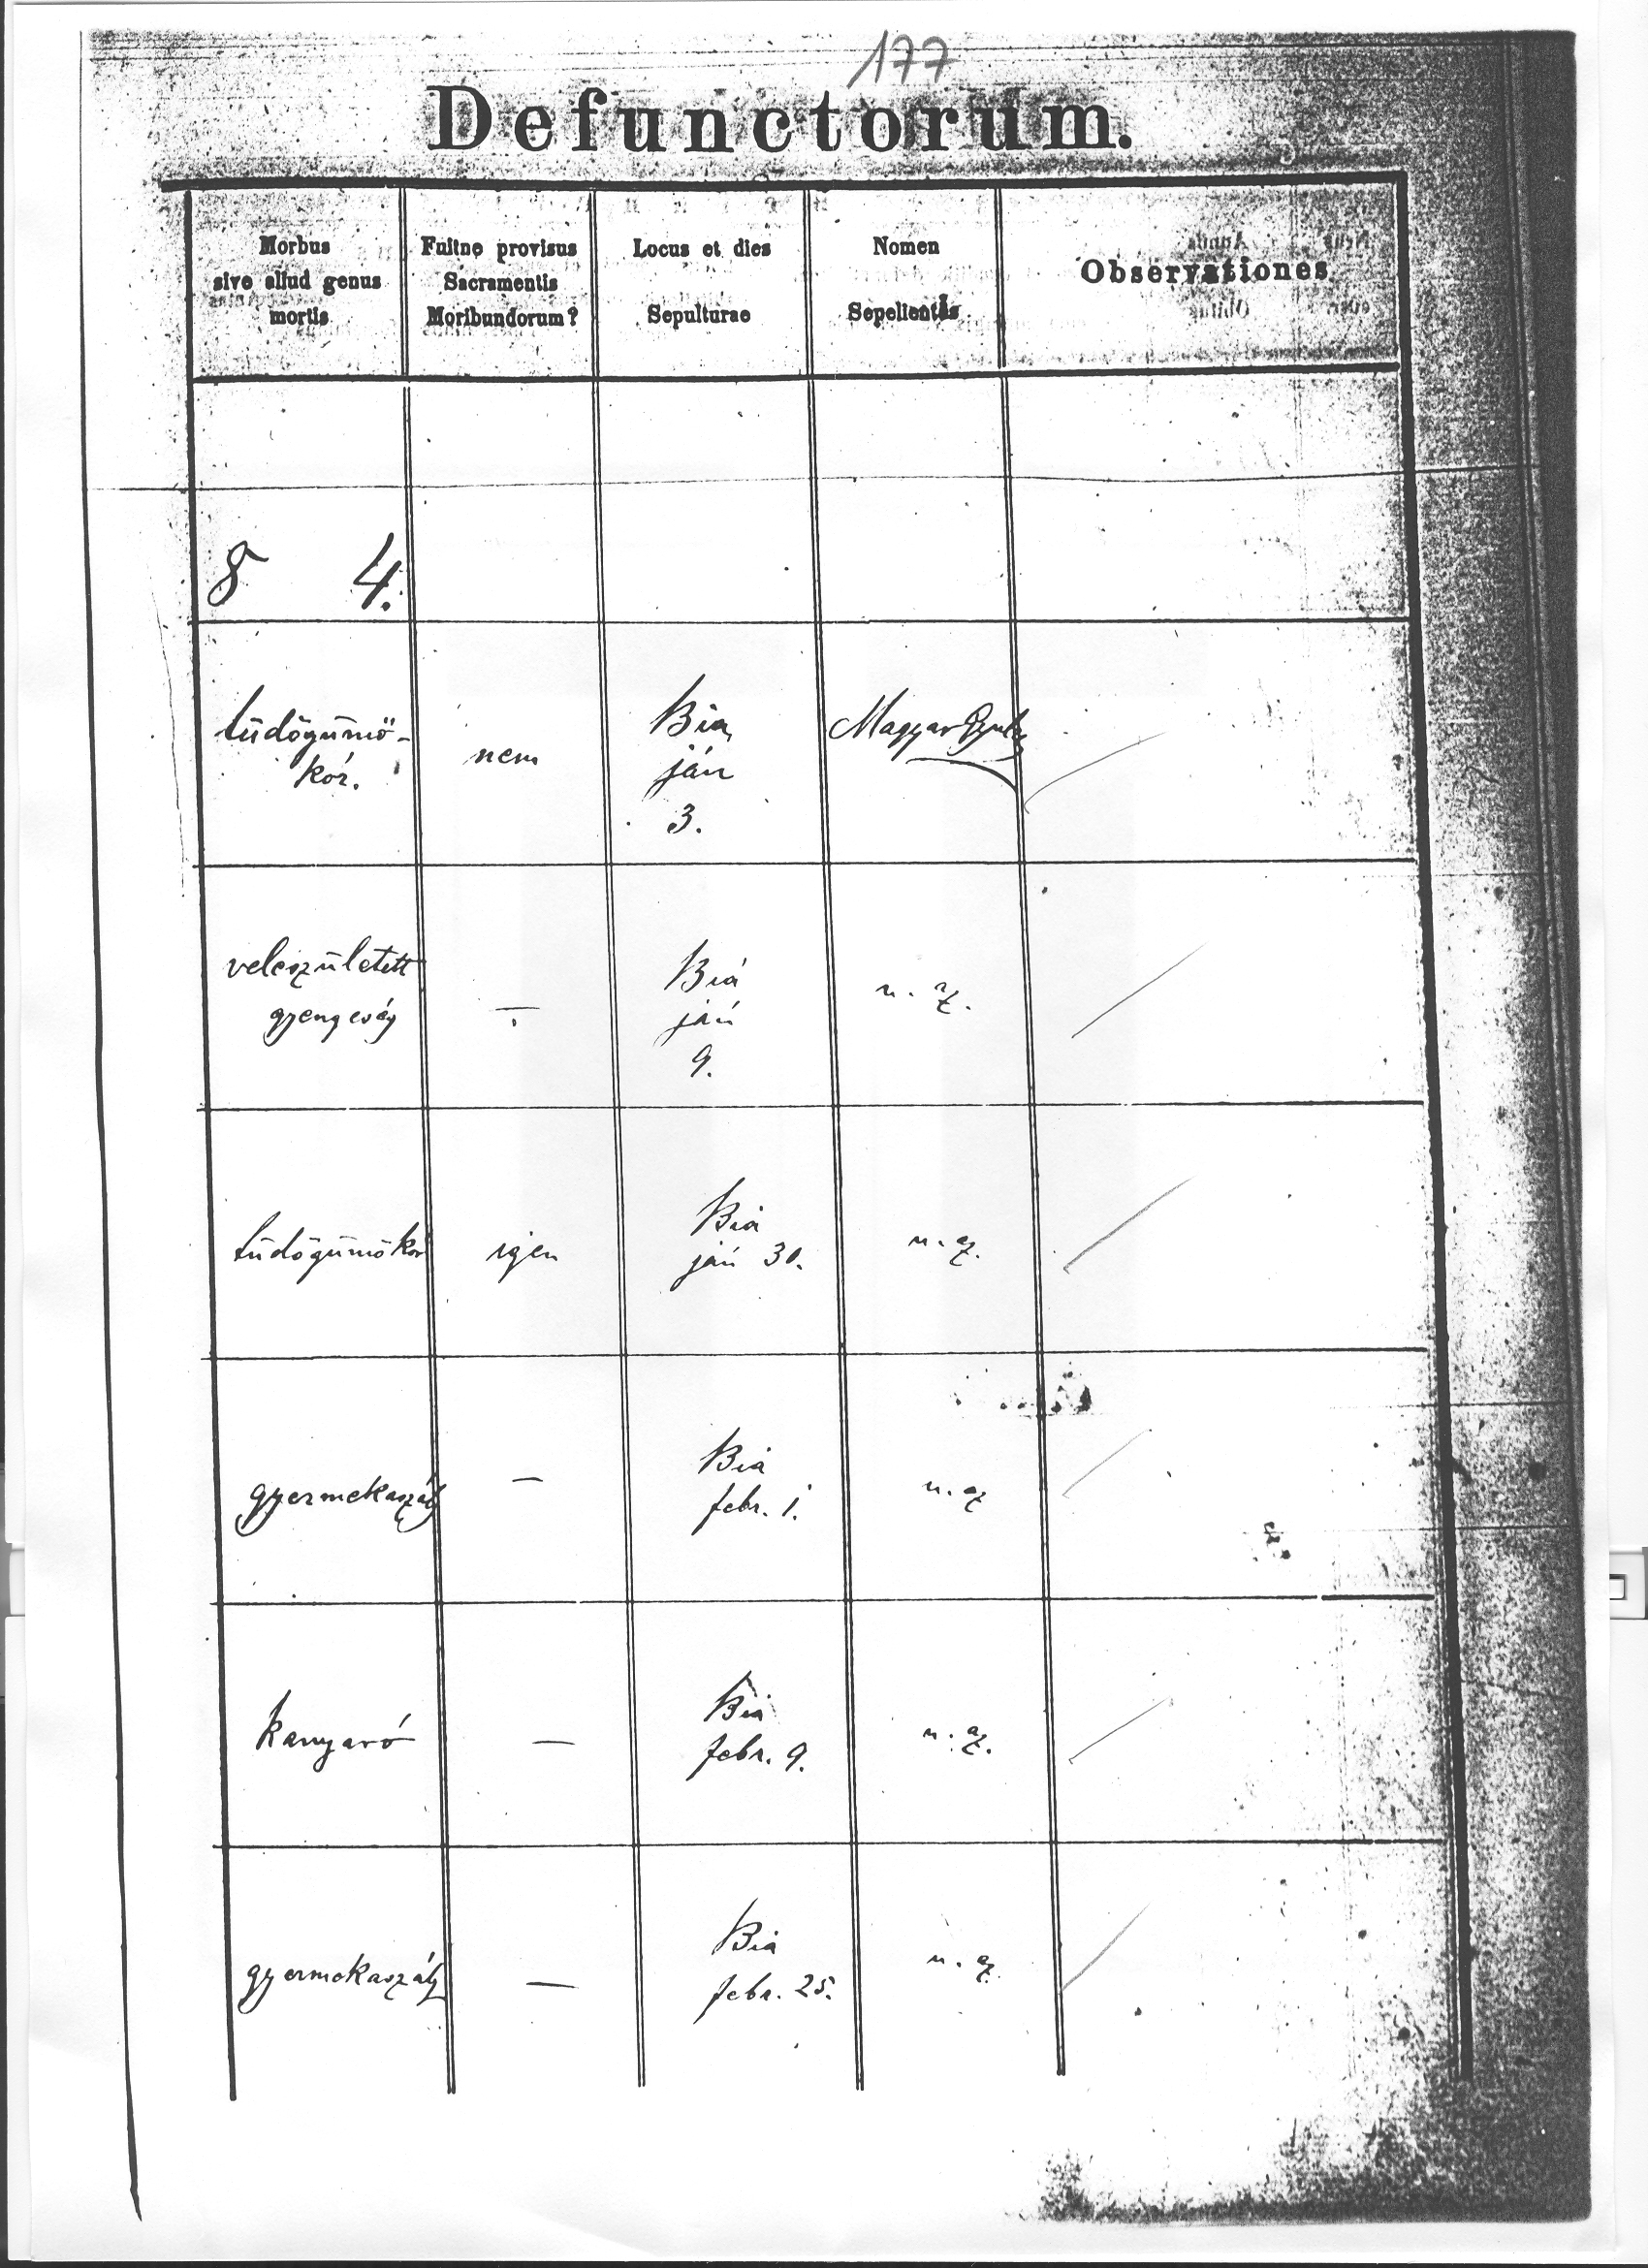 177
Defunctorum.
Morbus
sive aliud genus
mortis
Fuitne provisus
Sacramentis
Moribundorum?
Locus et dies
Sepulturae
Nomen
Sepelientis
Observationes
8 4.
tüdőgümő-
kór.
nem
Bia,
ján
3.
Magyar Gyula
veleszületett
gyengeség
—
Bia
ján
9.
u. az.
tüdőgümőkór
igen
Bia
ján 30.
u. az.
gyermekaszály
—
Bia
febr. 1.
u. az
kanyaró
—
Bia
febr. 9.
u. az.
gyermekaszály
—
Bia
febr. 25.
u. az.